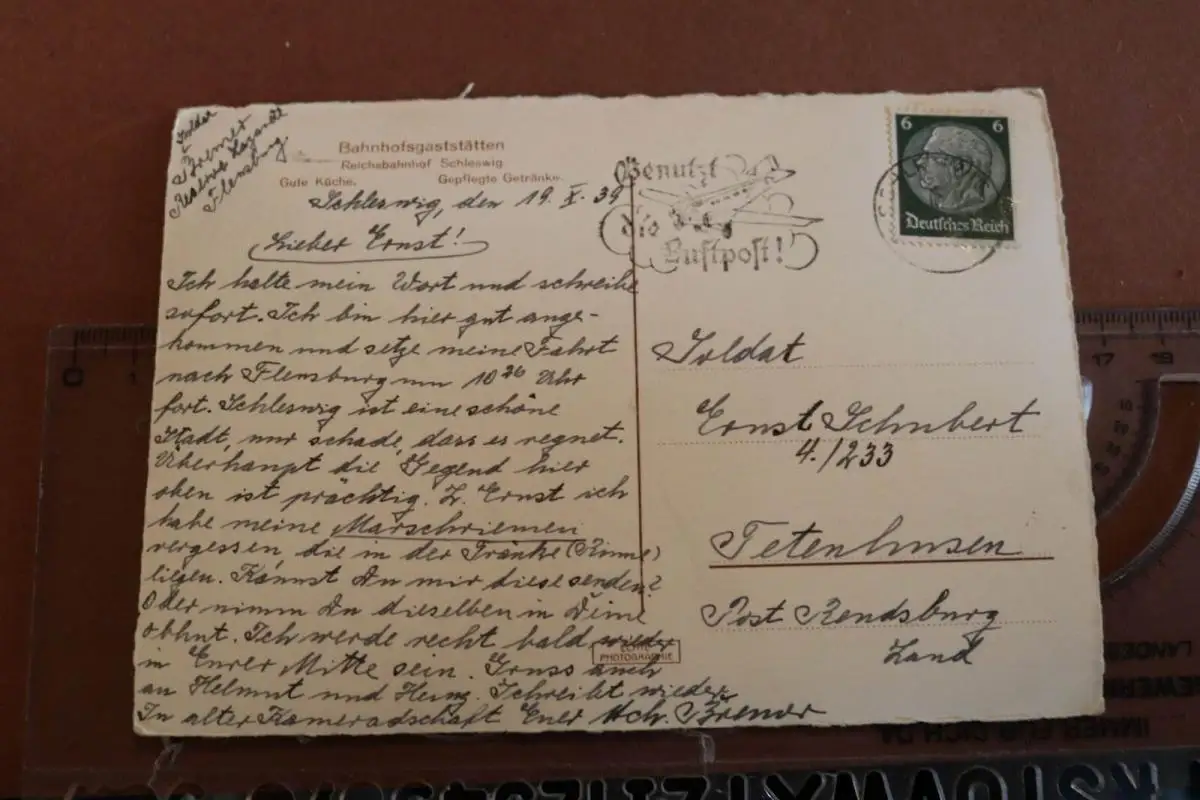 Soldat
Bremer
Reserve Lazarett
Flensburg.
Bahnhofsgaststätten
Reichsbahnhof Schleswig
Gute Küche. Gepflegte Getränke.
Schleswig, den 19. X. 39
Lieber Ernst!
Ich halte mein Wort und schreibe
sofort. Ich bin hier gut ange-
kommen und setze meine Fahrt
nach Flensburg um 10 26 Uhr
fort. Schleswig ist eine schöne
Stadt, nur schade, dass es regnet.
Überhaupt die Gegend hier
oben ist prächtig. L. Ernst ich
habe meine Marschriemen
vergessen, die in der Tränke (Rinne)
liegen. Kannst Du mir diese senden?
Oder nimm Du dieselben in Deine
Obhut. Ich werde recht bald wieder
in Eurer Mitte sein. Gruss auch
an Helmut und Heinz. Schreibt wieder
In alter Kameradschaft Euer Hch. Bremer
Benutzt
die
Luftpost!
6 6
Deutsches Reich
Soldat
Ernst Schubert
4./233
Tetenhusen
Post Rendsburg
Land
ECHTE
PHOTOGRAPHIE
0 1
17 19